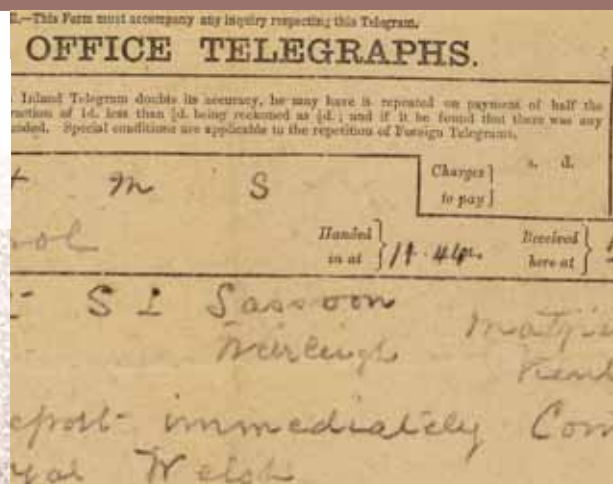 .—This Form must accompany any inquiry respecting this Telegram.
OFFICE TELEGRAPHS.
Inland Telegram doubts its accuracy, he may have it repeated on payment of half the
fraction of 1d. less than ½d. being reckoned as ½d.; and if it be found that there was any
Special conditions are applicable to the repetition of Foreign Telegrams.
M S
Charges to pay } s. d.
Handed in at } 11.44
Received here at }
S L Sassoon
Weirleigh
Kent
immediately
Welsh